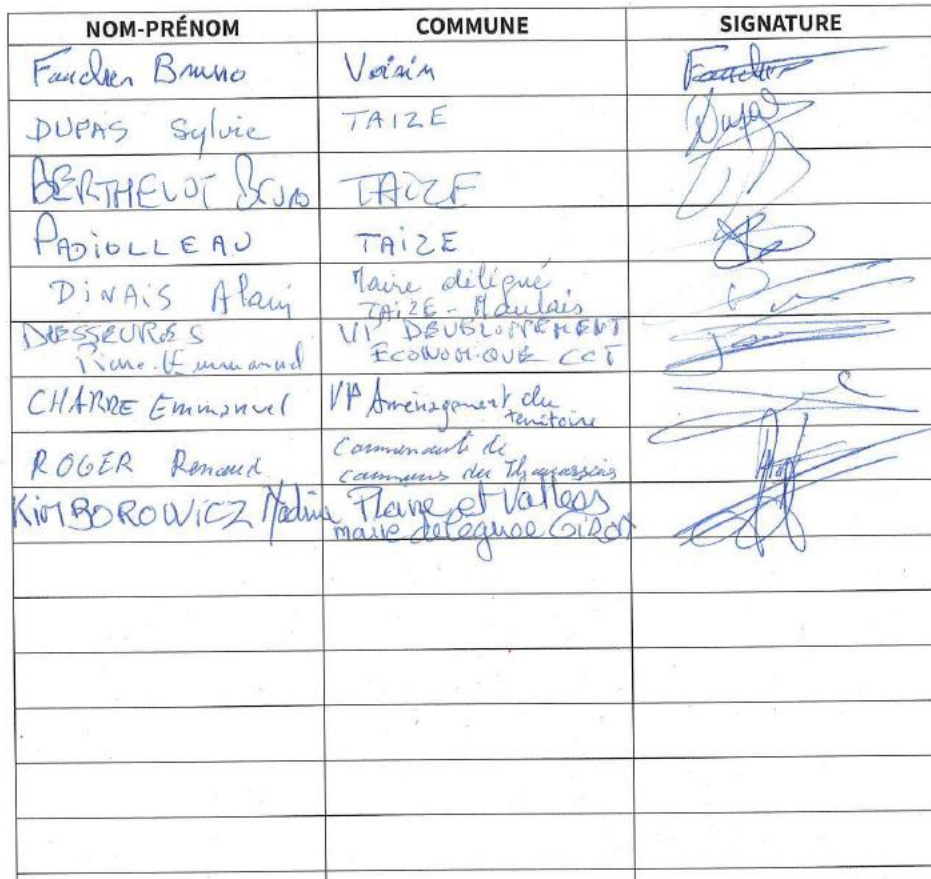 NOM-PRÉNOM COMMUNE SIGNATURE
Faucher Bruno Voisin Faucher
DUPAS Sylvie TAIZE Dupas
BERTHELOT Bruno TAIZE
PADIOLLEAU TAIZE
DINAIS Alain Maire délégué
TAIZE - Maulais
DESSEVRES VP DEVELOPPEMENT
Pierre-Emmanuel ECONOMIQUE CCT
CHARRE Emmanuel VP Aménagement du
territoire
ROGER Renaud Communauté de
communes du Thouarsais
KIMBOROWICZ Plaine et Vallées
maire déléguée